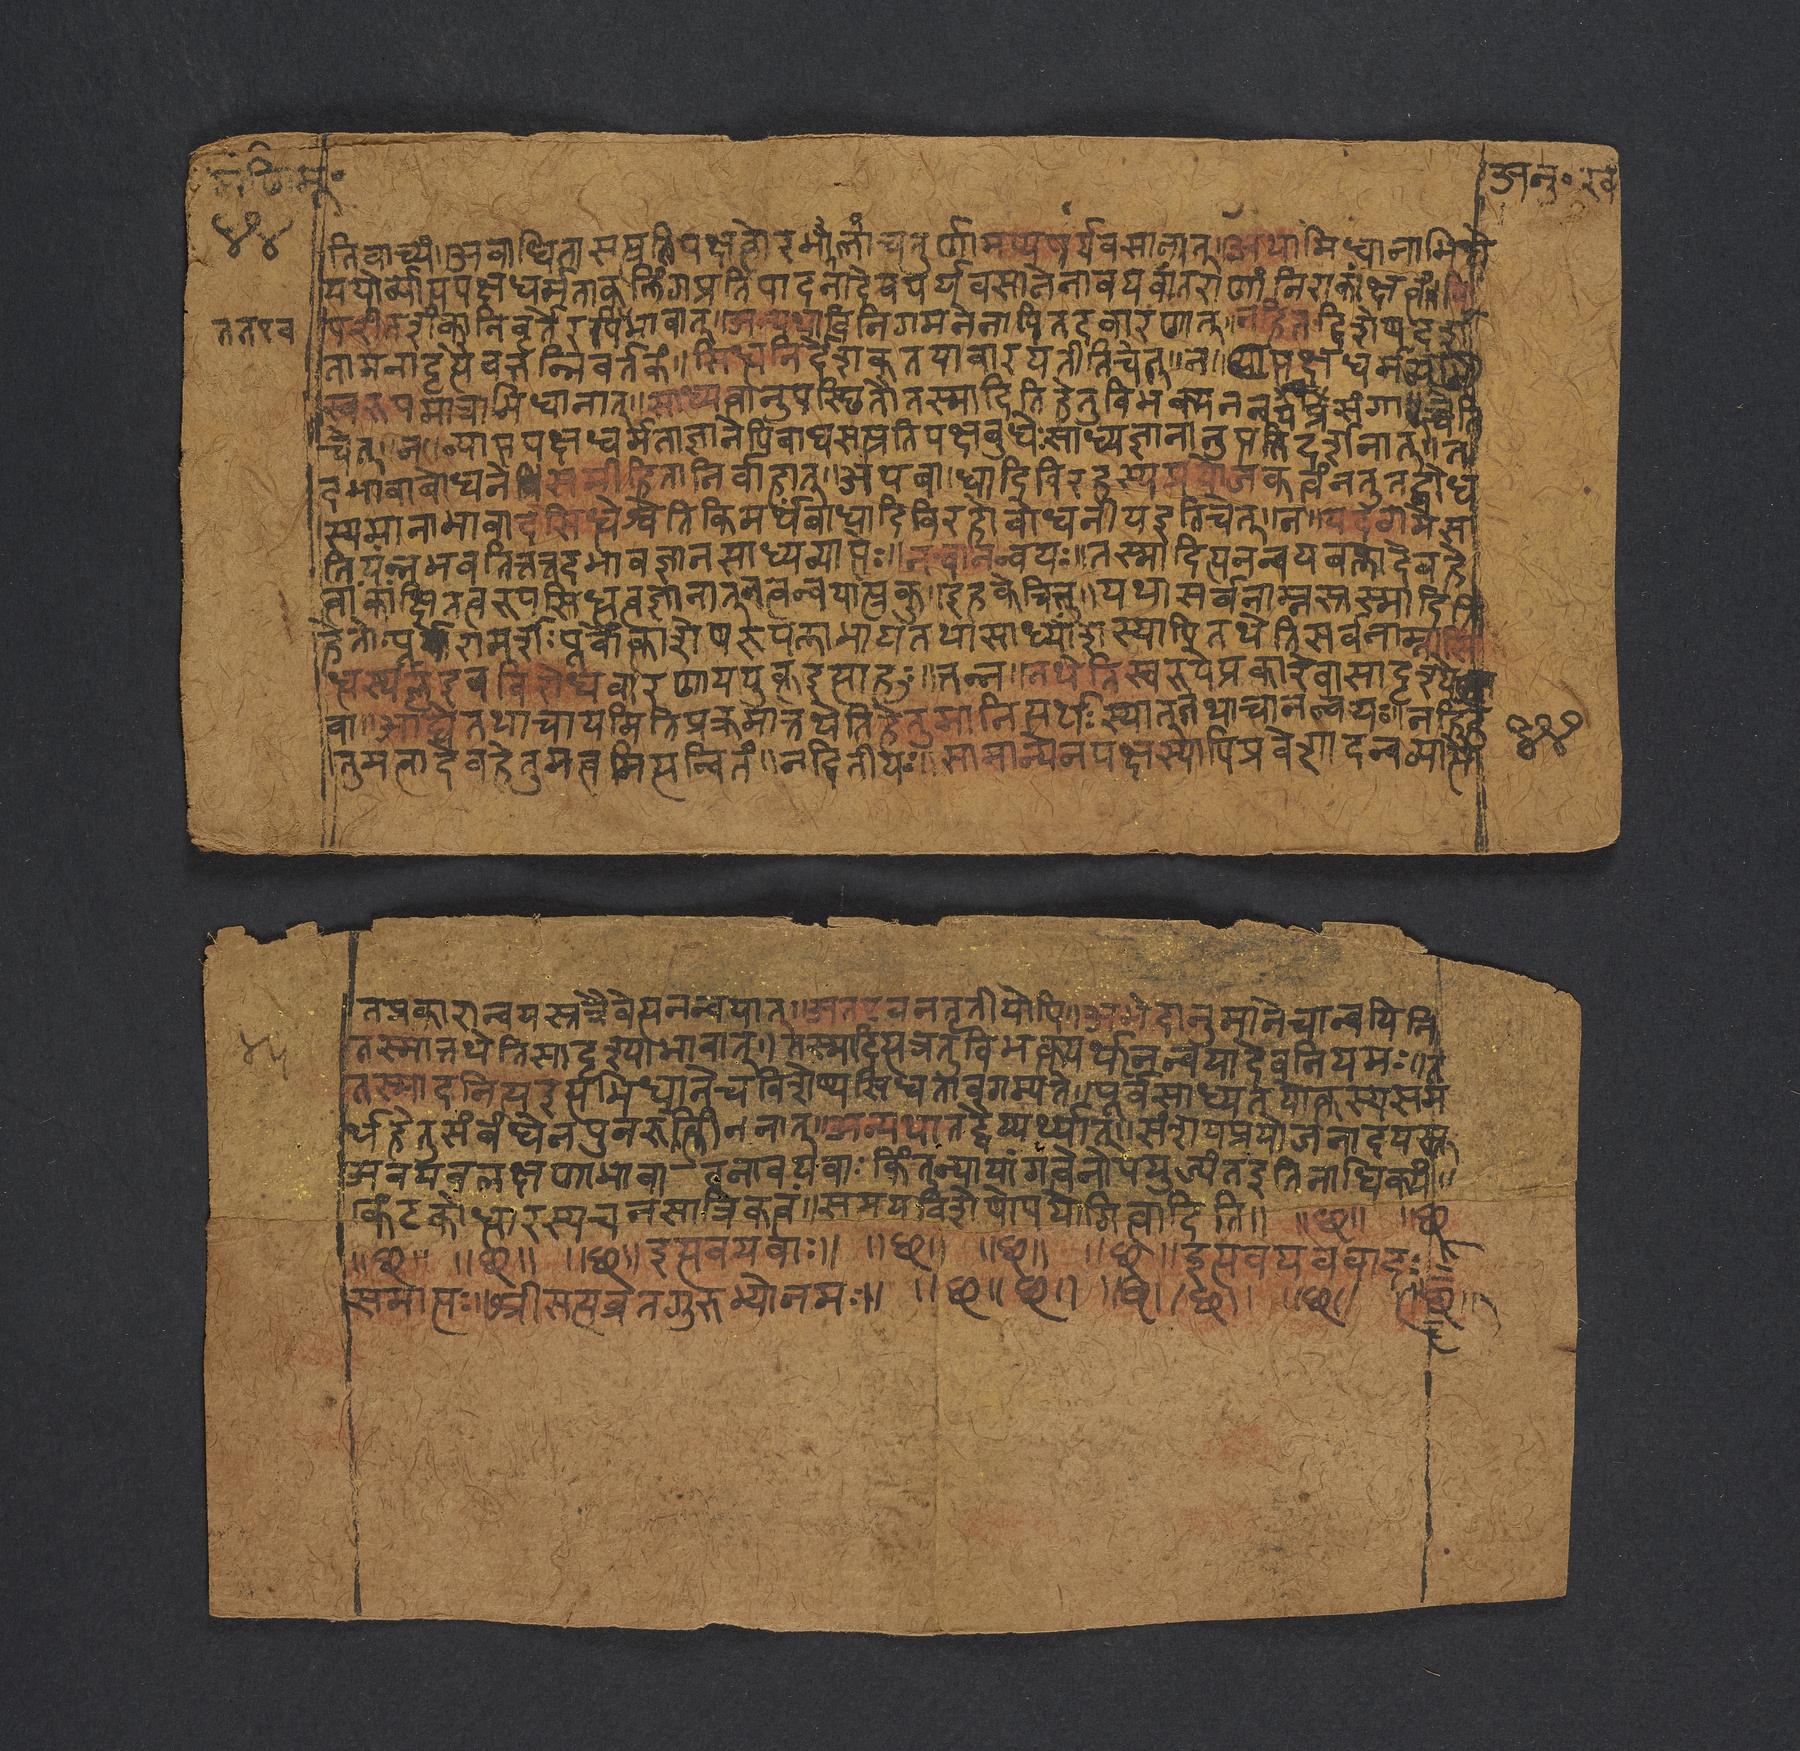 अनु॰ खं
४४
तिवाच्यं॥अबाधितासत्प्रतिपक्षत्वोरभौलाच चतुर्णामप्यपर्यवसानात्॥अथाभिधानाभिधे
ययोर्व्याप्तपक्षधर्मताकलिंगप्रतिपादनादेवपर्यवसानेनावयवांतराणांनिराकांक्षत्वं॥वि
ततएव
परीतशंकानिवृत्तेरपिभावात्॥अन्यथाद्विनिगमनेनापितदवारणात्॥नहितद्विशेषदर्श
तामनादृत्यैवतन्निवर्तकं॥सिध्यनिर्देशकतयावारयतीतिचेत्॥न॥व्याप्तपक्षधर्मस्यापि
स्वरूपमात्राभिधानात्॥साध्यर्वानुपस्थितौतस्मादितिहेतुविभक्त्यनन्वयप्रसंगाच्चेति
चेत्॥न॥व्याप्तपक्षधर्मताज्ञानेपिबाधसत्प्रतिपक्षबुधेःसाध्यज्ञानानुत्पत्तिदर्शनात्॥त
दभावाबोधनेपिसमीहितानिर्वाहात्॥अथबाधादिविरहस्यप्रयोजकत्वंनतुतद्बोध
स्यमानाभावादसिध्येश्चेतिकिमर्थंबाधादिविरहोबोधनीयइतिचेत्॥न॥यदवगमेस
तियन्नभवतितत्रतदभावज्ञानसाध्यव्याप्तः॥नचानन्वयः॥तस्मादित्यनन्वयवत्तादेवहे
त्वाकांक्षितत्वरूपसिध्यत्वज्ञानातुनत्वन्वयोत्सुकु॥इहकेचित्तु॥यथासर्वनाम्नस्तस्मादिति
हेतोःपरामर्शःपूर्वोक्ताशेषरूपलाभागतर्थासाध्यांशस्यापितथेतिसर्वनाम्नासि
ध्यर्स्यवृइवविरोध्यवारणाययुक्तइत्याहुः॥तन्न॥तथेतिस्वरूपेप्रकारेवासादृश्ये
वा॥आद्येतथाचायमितिप्रक्रमात्तथेतिहेतुमानित्यर्थःस्यात्तुतथाचानन्वयः॥नहिहे
तुमत्वादेवहेतुमत्वमित्यन्वितं॥नद्वितीयः॥सामान्येनपक्षस्यापिप्रवेशादनन्वयात्
४४
तत्प्रकारान्वयस्तत्रैवेत्यनन्वयात्॥अतएवनतृतीयोपि॥अभेदानुमानेचान्वयिनि
४५
तस्मात्तथेतिसादृश्याभावात्॥तस्मादित्यत्रतुविभक्त्यर्थानन्वयादेवनियमः॥त
तस्मादनित्यइत्यभिधानेचविशेष्यसिध्यतावगम्यते॥पूर्वसाध्यतयोक्तस्यसम
र्थहेतुसंबंधेनपुनरुक्तिीननात्॥अन्यथातद्वैयर्थ्यात्॥संशयप्रयोजनादयस्तु
अवयवलक्षणाभावा-न्नावयवाः किंतुन्यायांगत्वेनोपयुज्यंतइतिनाधिक्यं॥
कंटकोध्धारस्यचनसार्वत्रिकत्वं॥समयविशेषोपयोगित्वादिति॥ ॥छ॥ ॥छ॥
॥छ॥ ॥छ॥ ॥छ॥इत्यवयवाः॥ ॥छ॥ ॥छ॥ ॥छ॥इत्यवयववादः
समाप्तः॥७श्रीसत्यव्रतगुरुभ्योनमः॥ ॥छ॥छ॥ ॥छ॥छ॥ ॥छ॥ ॥छ॥